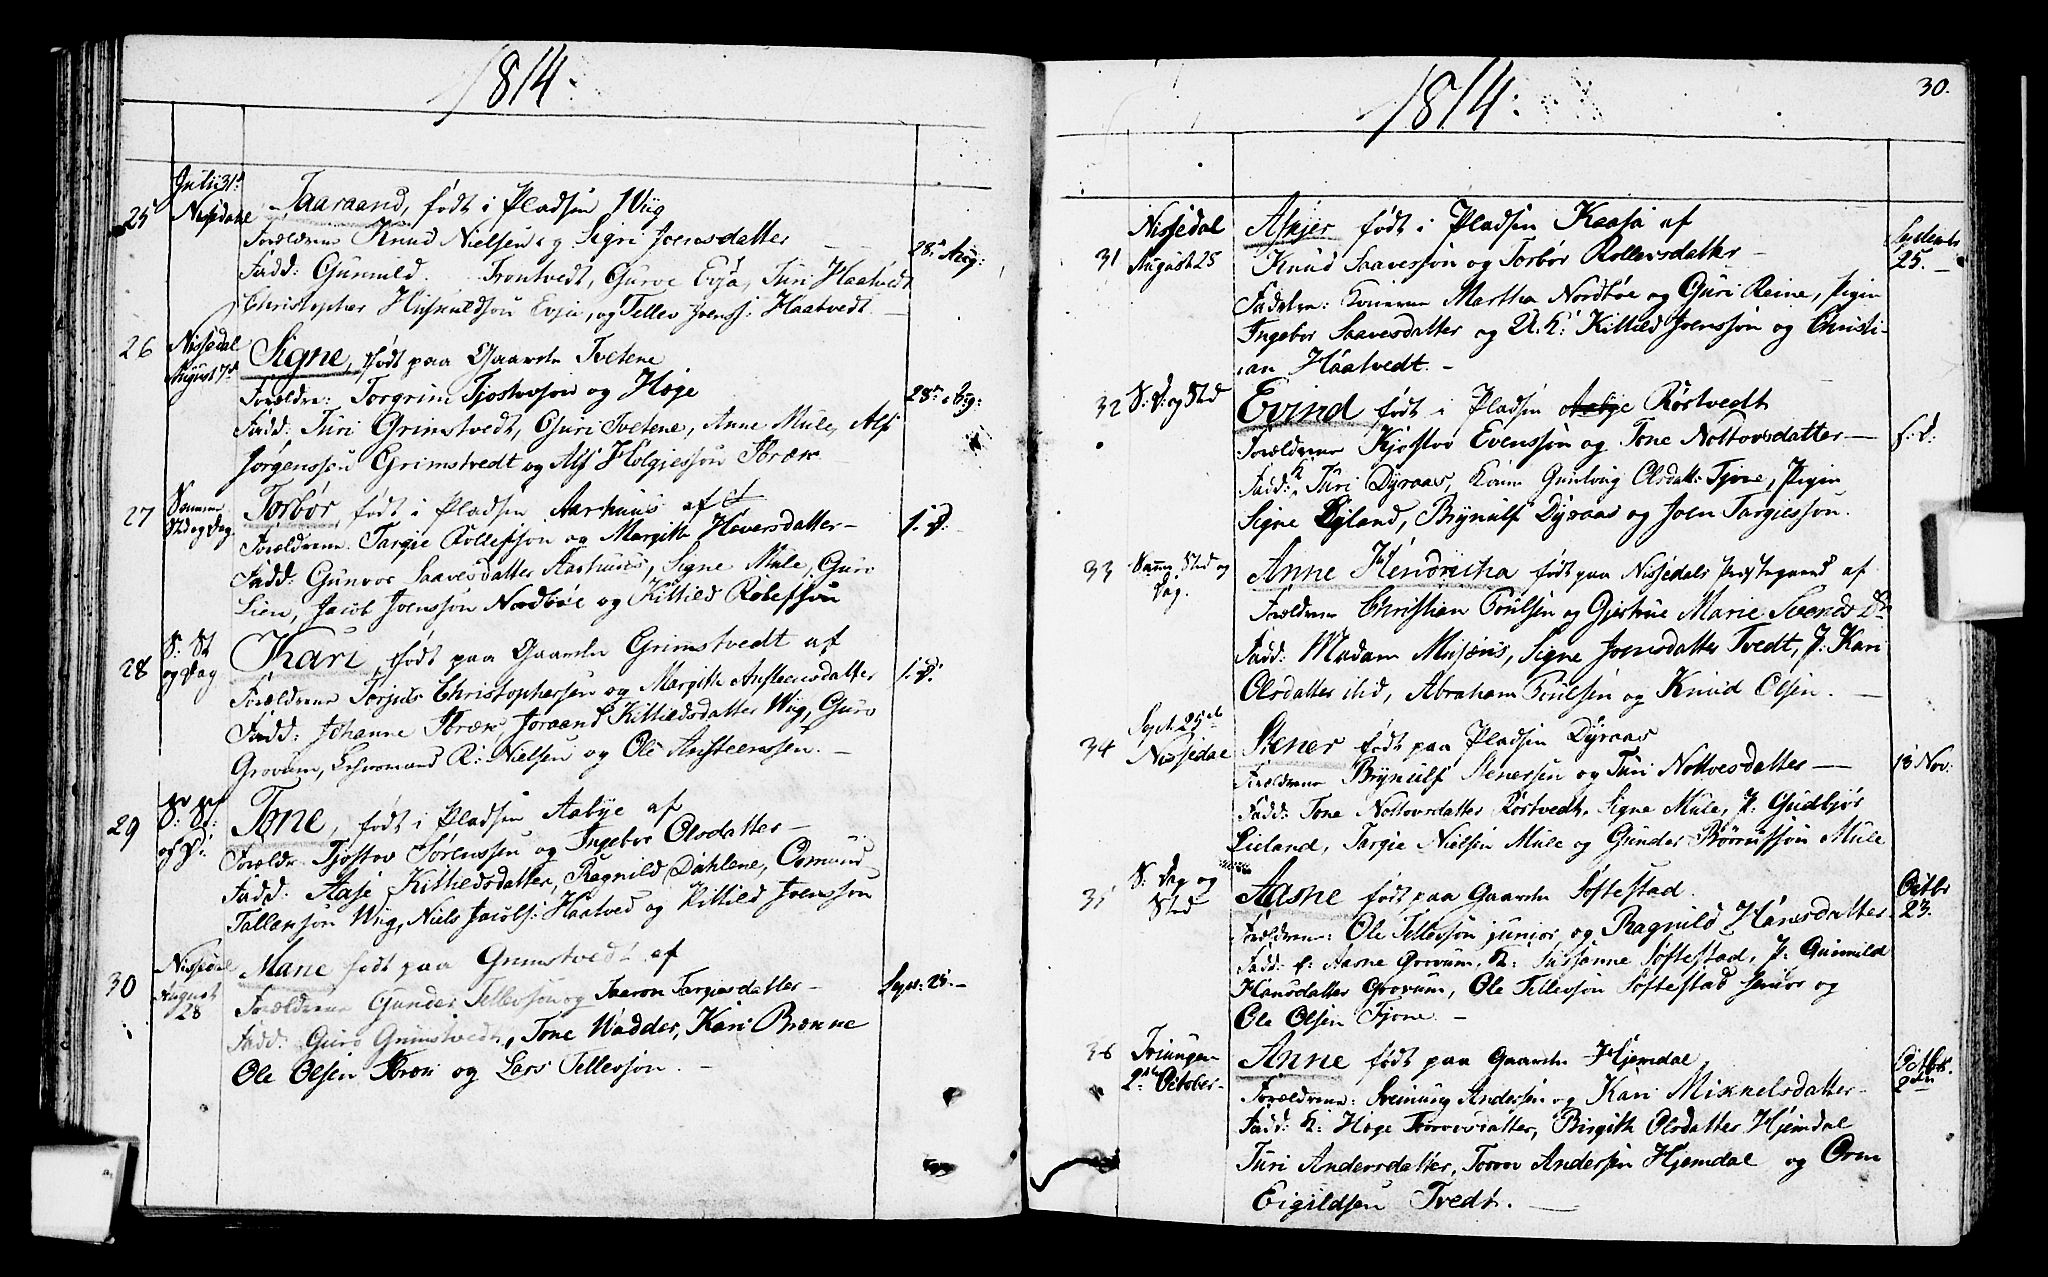 1814.
Julii 31te
25 Nissedal Taaraand, født i Pladsen Wiig
Forældrene Knud Nielsen og Sigri Joensdatter — 28de Aug:
Fadd: Gunnild Trontvedt, Guroe Evja, Turi Haatvedt
Christopher Evju, og Tellev Joenss: Haatvedt.
26 Nissedal August 7de Signe, født paa Gaarden Tvetene
Forældre: Torgrim Tjostvsson og Hæge 28de Aug:
Fadd: Turi Grimstvedt, Guri Tvetene, Anne Mule, Alf
Jørgenssøn Grimstvedt og Alf Helgiessøn Træe
27 Samme Sted og Dag Torbør født i Pladsen Aarhuus af
Forældrene Targie Rollefssøn og Margith Haversdatter — s: D:
Fadd: Gunvor Saavesdatter Aarhuus, Signe Mule, Guro
Lien, Jacob Joenssøn Nordbøe og Kittild Rolefssøn
28 S: St og Dag Kari, født paa Gaarden Grimstvedt af
Forældrene Torjus Christophersen og Margith Austeensdatter s: D:
Fadd: Johanne Træe, Joraand Kittildsdatter Wiig, Guro
Grovum, R: Nielsen og Ole Austeenssen. —
29 S: St: og D: Tone, født i Pladsen Aabye af
Forældre Tjostov Sørenssen og Ingebor Olsdatter —
Fadd: Aase Kittildsdatter, Ragnild Dahlene, Osmund
Tallakssøn Wiig, Niels Jacobs: Haatved og Kittild Joenssøn
30 Nissedal August 28 Marie født paa Grimstvedt af
Forældrene Gunder Tellevsøn og Taaron Targiesdatter — Sept: 25. —
Fadd: Guro Grimstvedt, Tone Wadder, Kari Brænne
Ole Olsen Træe og Lars Tellevsøn. —
1814.
30.
31 Nissedal August 25 Asbjør født i Pladsen Kaasa af September 25. —
Knud Saavessøn og Torbør Rollevsdatter —
Fadderne: Konerne Martha Nordbøe og Guri Reine, Pigen
Ingebor Saavesdatter og U: K: Kittild Joenssøn og Christi-
an Haatvedt. —
32 S: D: og Sted Evind født i Pladsen Aabye Rørtvedt
Forældrene Kjøstov Evenssøn og Tone Nottovsdatter — s: D:
Fadd: K Turi Dyraas, Konen Gunloug Olsdatt: Fjone, Pigen
Signe Lyland, Brynulf Dyraas og Joen Targiessøn.
33 Samme Sted og Dag. Anne Hendricha født paa Nissedals Præstegaard af
Forældrene Christian Poulsen og Giertrue Marie Svends Dr
Fadd: Madam Missæus, Signe Joensdatter Tvedt, P: Kari
Olsdatter ibid, Abraham Poulsen og Knud Olsen. —
34 Sept. 25de Nissedal Stener født paa Pladsen Dyraas
Forældrene Brynulf Stenersen og Turi Nottvesdatter — 13 Nov:
Fadd: Tone Nottovsdatter Rørtvedt, Signe Mule, P: Gudbjør
Lieland, Targie Nielsen Mule og Gunder Mule
35 S: Dag og Sted Aasne født paa Gaarden Søftestad. Octbr 23.
Forældrene: Ole Tellevsøn junior og Ragnild Hansdatter
Fadd: Aasne Grovum, K: Susanne Søftestad, P: Gunnild
Hansdatter Grovum, Ole Tellevsøn Søftestad Senior og
Ole Olsen Fjone. —
36 Treungen 2den October Anne født paa Gaarden Hjemdal Octbr. 2den
Forældrene: Sveinung Andersen og Kari Mikkelsdatter —
Fadd: K: Hæge Torovsdatter, Birgith Olsdatter Hjemdal
Turi Andersdatter, Torov Andersen Hjemdal og Orm
Eigildsen Tvedt. —